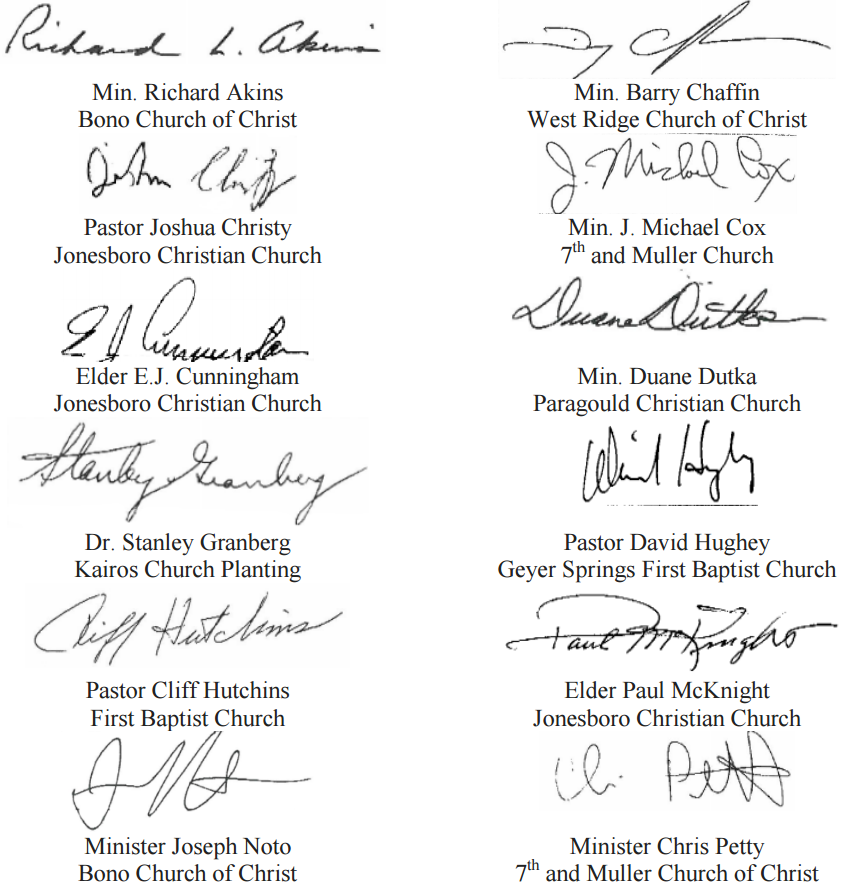 Richard L. Akins
Min. Richard Akins
Bono Church of Christ
Min. Barry Chaffin
West Ridge Church of Christ
Pastor Joshua Christy
Jonesboro Christian Church
J. Michael Cox
Min. J. Michael Cox
7th and Muller Church
Elder E.J. Cunningham
Jonesboro Christian Church
Duane Dutka
Min. Duane Dutka
Paragould Christian Church
Stanley Granberg
Dr. Stanley Granberg
Kairos Church Planting
Pastor David Hughey
Geyer Springs First Baptist Church
Cliff Hutchins
Pastor Cliff Hutchins
First Baptist Church
Paul McKnight
Elder Paul McKnight
Jonesboro Christian Church
Minister Joseph Noto
Bono Church of Christ
Minister Chris Petty
7th and Muller Church of Christ